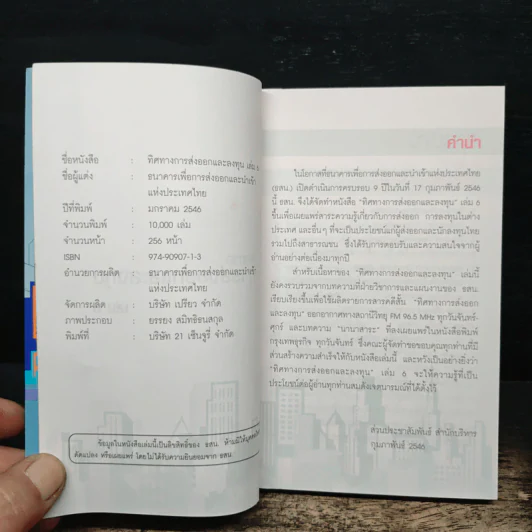 ชื่อหนังสือ : ทิศทางการส่งออกและลงทุน เล่ม 6
ชื่อผู้แต่ง : ธนาคารเพื่อการส่งออกและนำเข้า
แห่งประเทศไทย
ปีที่พิมพ์ : มกราคม 2546
จำนวนพิมพ์ : 10,000 เล่ม
จำนวนหน้า : 256 หน้า
ISBN : 974-90907-1-3
อำนวยการผลิต : ธนาคารเพื่อการส่งออกและนำเข้า
แห่งประเทศไทย
จัดการผลิต : บริษัท เปรียว จำกัด
ภาพประกอบ : ยรรยง สมิทธิธนสกุล
พิมพ์ที่ : บริษัท 21 เซ็นจูรี่ จำกัด
ข้อมูลในหนังสือเล่มนี้เป็นลิขสิทธิ์ของ ธสน. ห้ามมิให้
ดัดแปลง หรือเผยแพร่ โดยไม่ได้รับความยินยอมจาก ธสน.
คำนำ
ในโอกาสที่ธนาคารเพื่อการส่งออกและนำเข้าแห่งประเทศไทย
(ธสน.) เปิดดำเนินการครบรอบ 9 ปีในวันที่ 17 กุมภาพันธ์ 2546
นี้ ธสน. จึงได้จัดทำหนังสือ "ทิศทางการส่งออกและลงทุน" เล่ม 6
ขึ้นเพื่อเผยแพร่สาระความรู้เกี่ยวกับการส่งออก การลงทุนในต่าง
ประเทศ และอื่นๆ ที่จะเป็นประโยชน์แก่ผู้ส่งออกและนักลงทุนไทย
รวมไปถึงสาธารณชน ซึ่งได้รับการตอบรับและความสนใจจากผู้
อ่านอย่างต่อเนื่องมาทุกปี
สำหรับเนื้อหาของ "ทิศทางการส่งออกและลงทุน" เล่มนี้
ยังคงรวบรวมจากบทความที่ฝ่ายวิชาการและแผนงานของ ธสน.
เรียบเรียงขึ้นเพื่อใช้ผลิตรายการสารคดีสั้น "ทิศทางการส่งออก
และลงทุน" ออกอากาศทางสถานีวิทยุ FM 96.5 MHz ทุกวันจันทร์-
ศุกร์ และบทความ "นานาสาระ" ที่ลงเผยแพร่ในหนังสือพิมพ์
กรุงเทพธุรกิจ ทุกวันจันทร์ ซึ่งคณะผู้จัดทำขอขอบคุณทุกท่านที่มี
ส่วนสร้างความสำเร็จให้กับหนังสือเล่มนี้ และหวังเป็นอย่างยิ่งว่า
"ทิศทางการส่งออกและลงทุน" เล่ม 6 จะให้ความรู้ที่เป็น
ประโยชน์ต่อผู้อ่านทุกท่านสมดังเจตนารมณ์ที่ได้ตั้งไว้
ส่วนประชาสัมพันธ์ สำนักบริหาร
กุมภาพันธ์ 2546